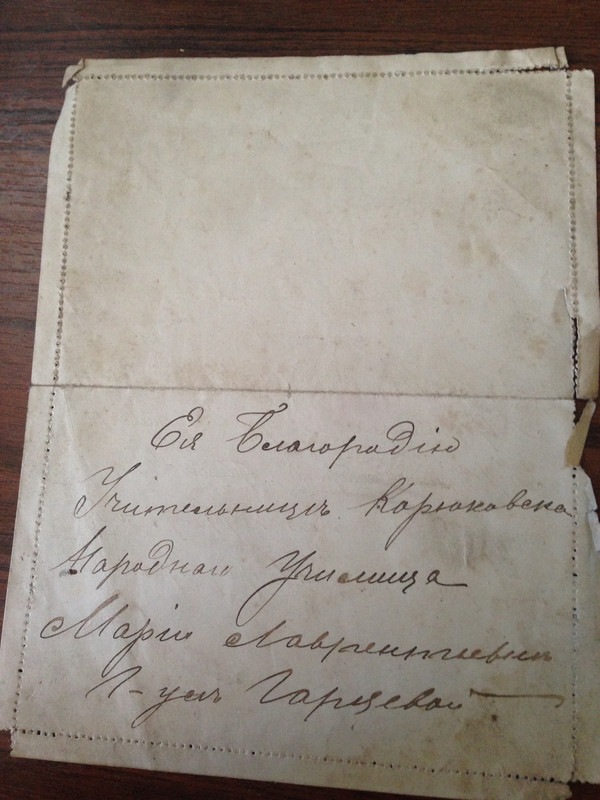 Ея Благородію
Учительницѣ Корюковска
Народнаго Училища
Маріи Лаврентіевнѣ
Г-жѣ Гарцевой